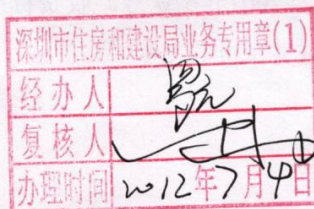 深圳市住房和建设局业务专用章(1)
经办人
复核人
办理时间 2012年7月4日